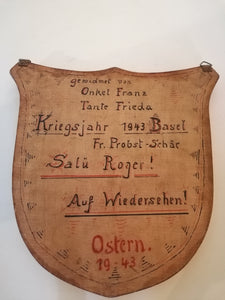 gewidmet von
Onkel Franz
Tante Frieda
Kriegsjahr 1943 Basel
Fr. Probst-Schär
Salü Roger!
Auf Wiedersehen!
Ostern.
19-43